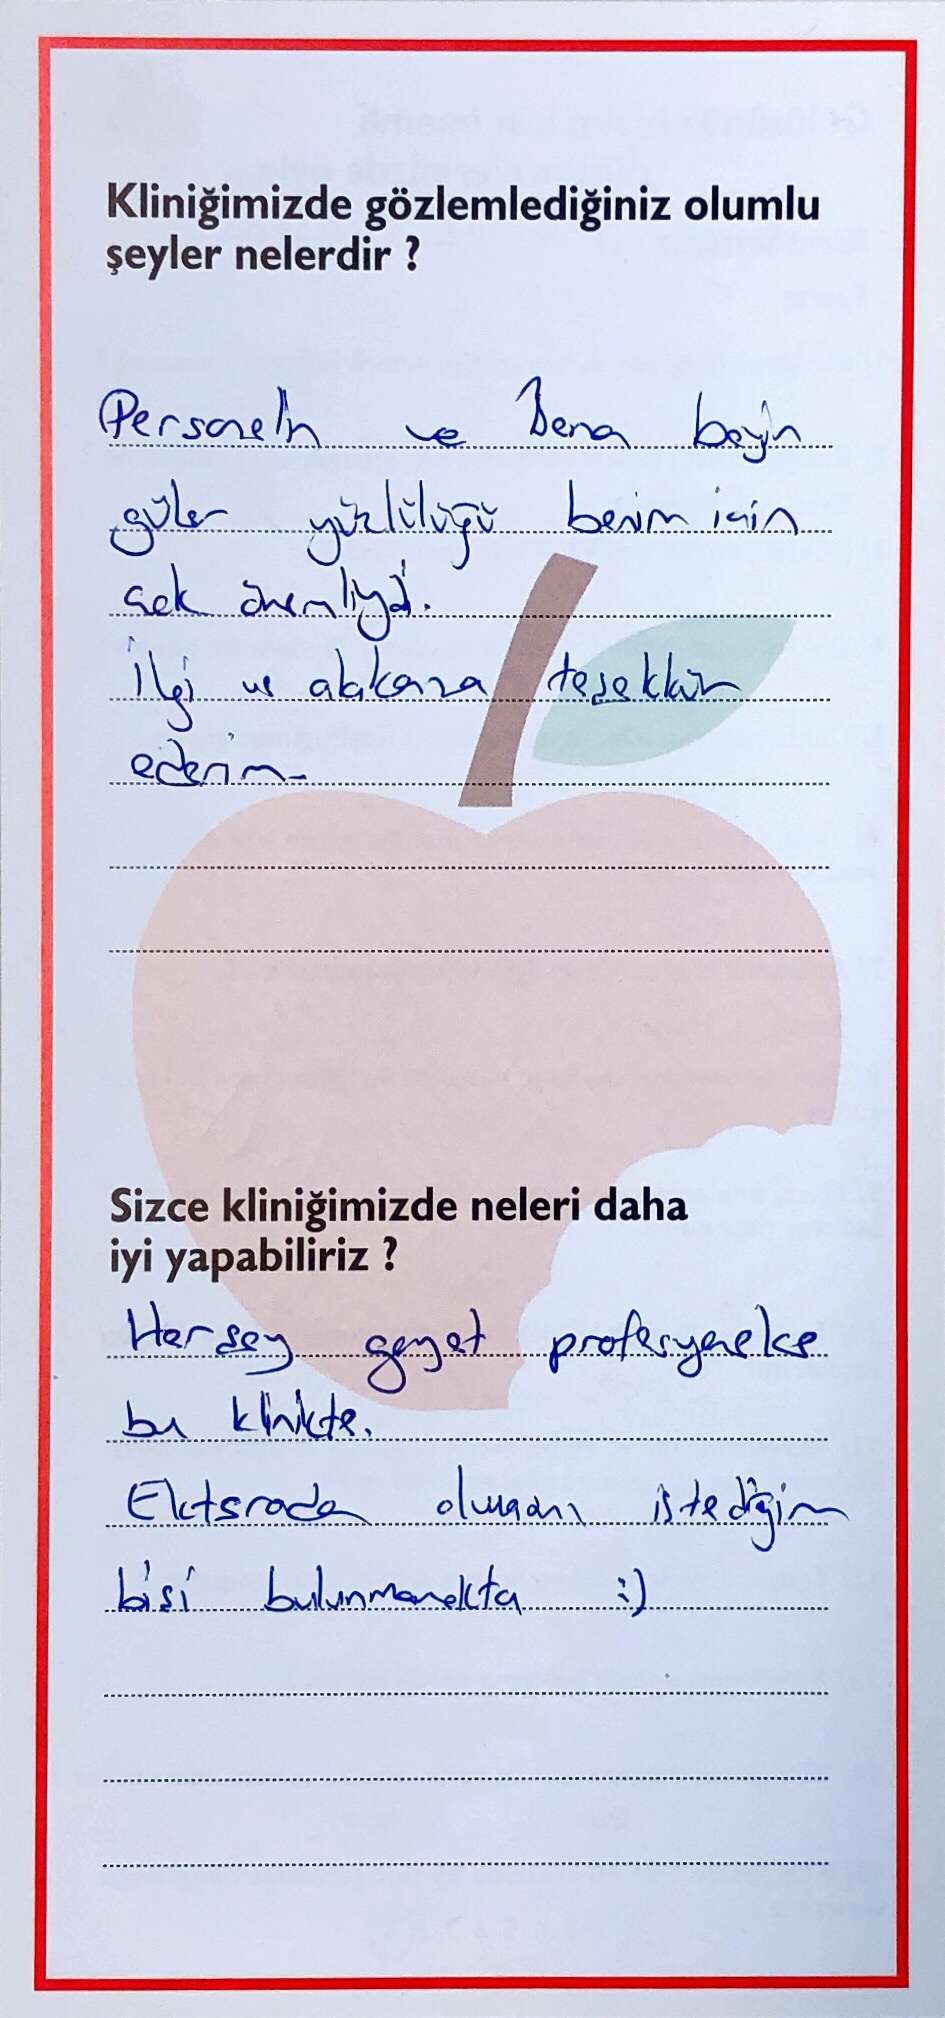 Kliniğimizde gözlemlediğiniz olumlu
şeyler nelerdir ?
Personelin ve Bena beyin
güler yüzlülüğü benim için
çok önemliydi.
İlgi ve alakanıza teşekkür
ederim
Sizce kliniğimizde neleri daha
iyi yapabiliriz ?
Herşey gayet profesyonelce
bu klinikte.
Ektsrada olmasını istediğim
bişi bulunmamakta :)